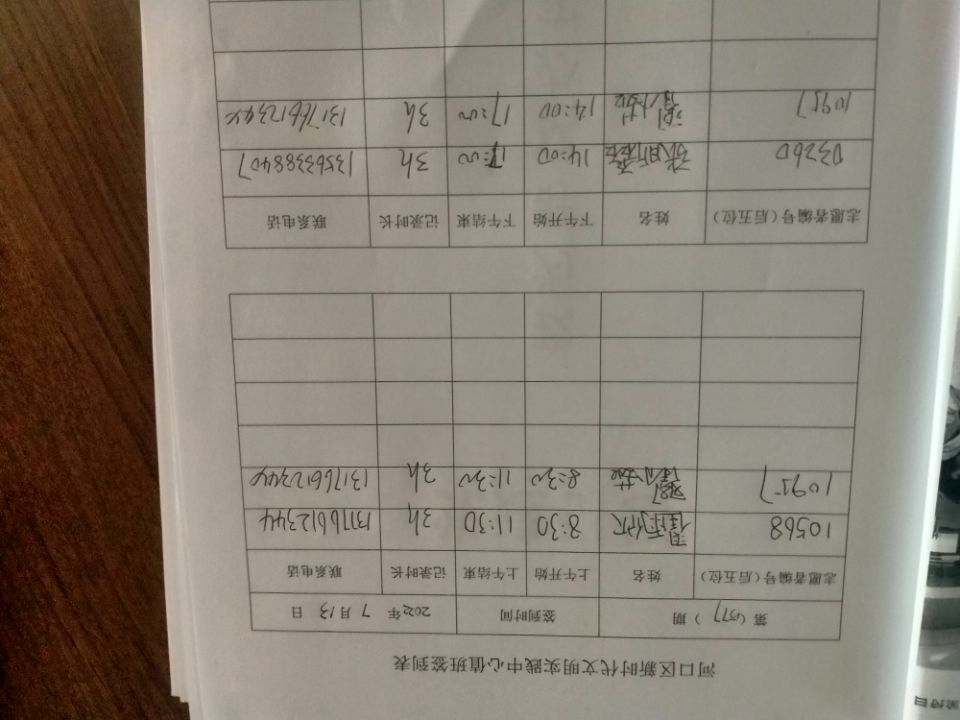 河口区新时代文明实践中心值班签到表
第（157）期 签到时间 2022年 7月13日
志愿者编号（后五位） 姓名 上午开始 上午结束 记录时长 联系电话
10568 8:30 11:30 3h 13176612344
10957 8:30 11:30 3h 13176612344
志愿者编号（后五位） 姓名 下午开始 下午结束 记录时长 联系电话
03260 14:00 17:00 3h 13563388407
10957 14:00 17:00 3h 13176612344